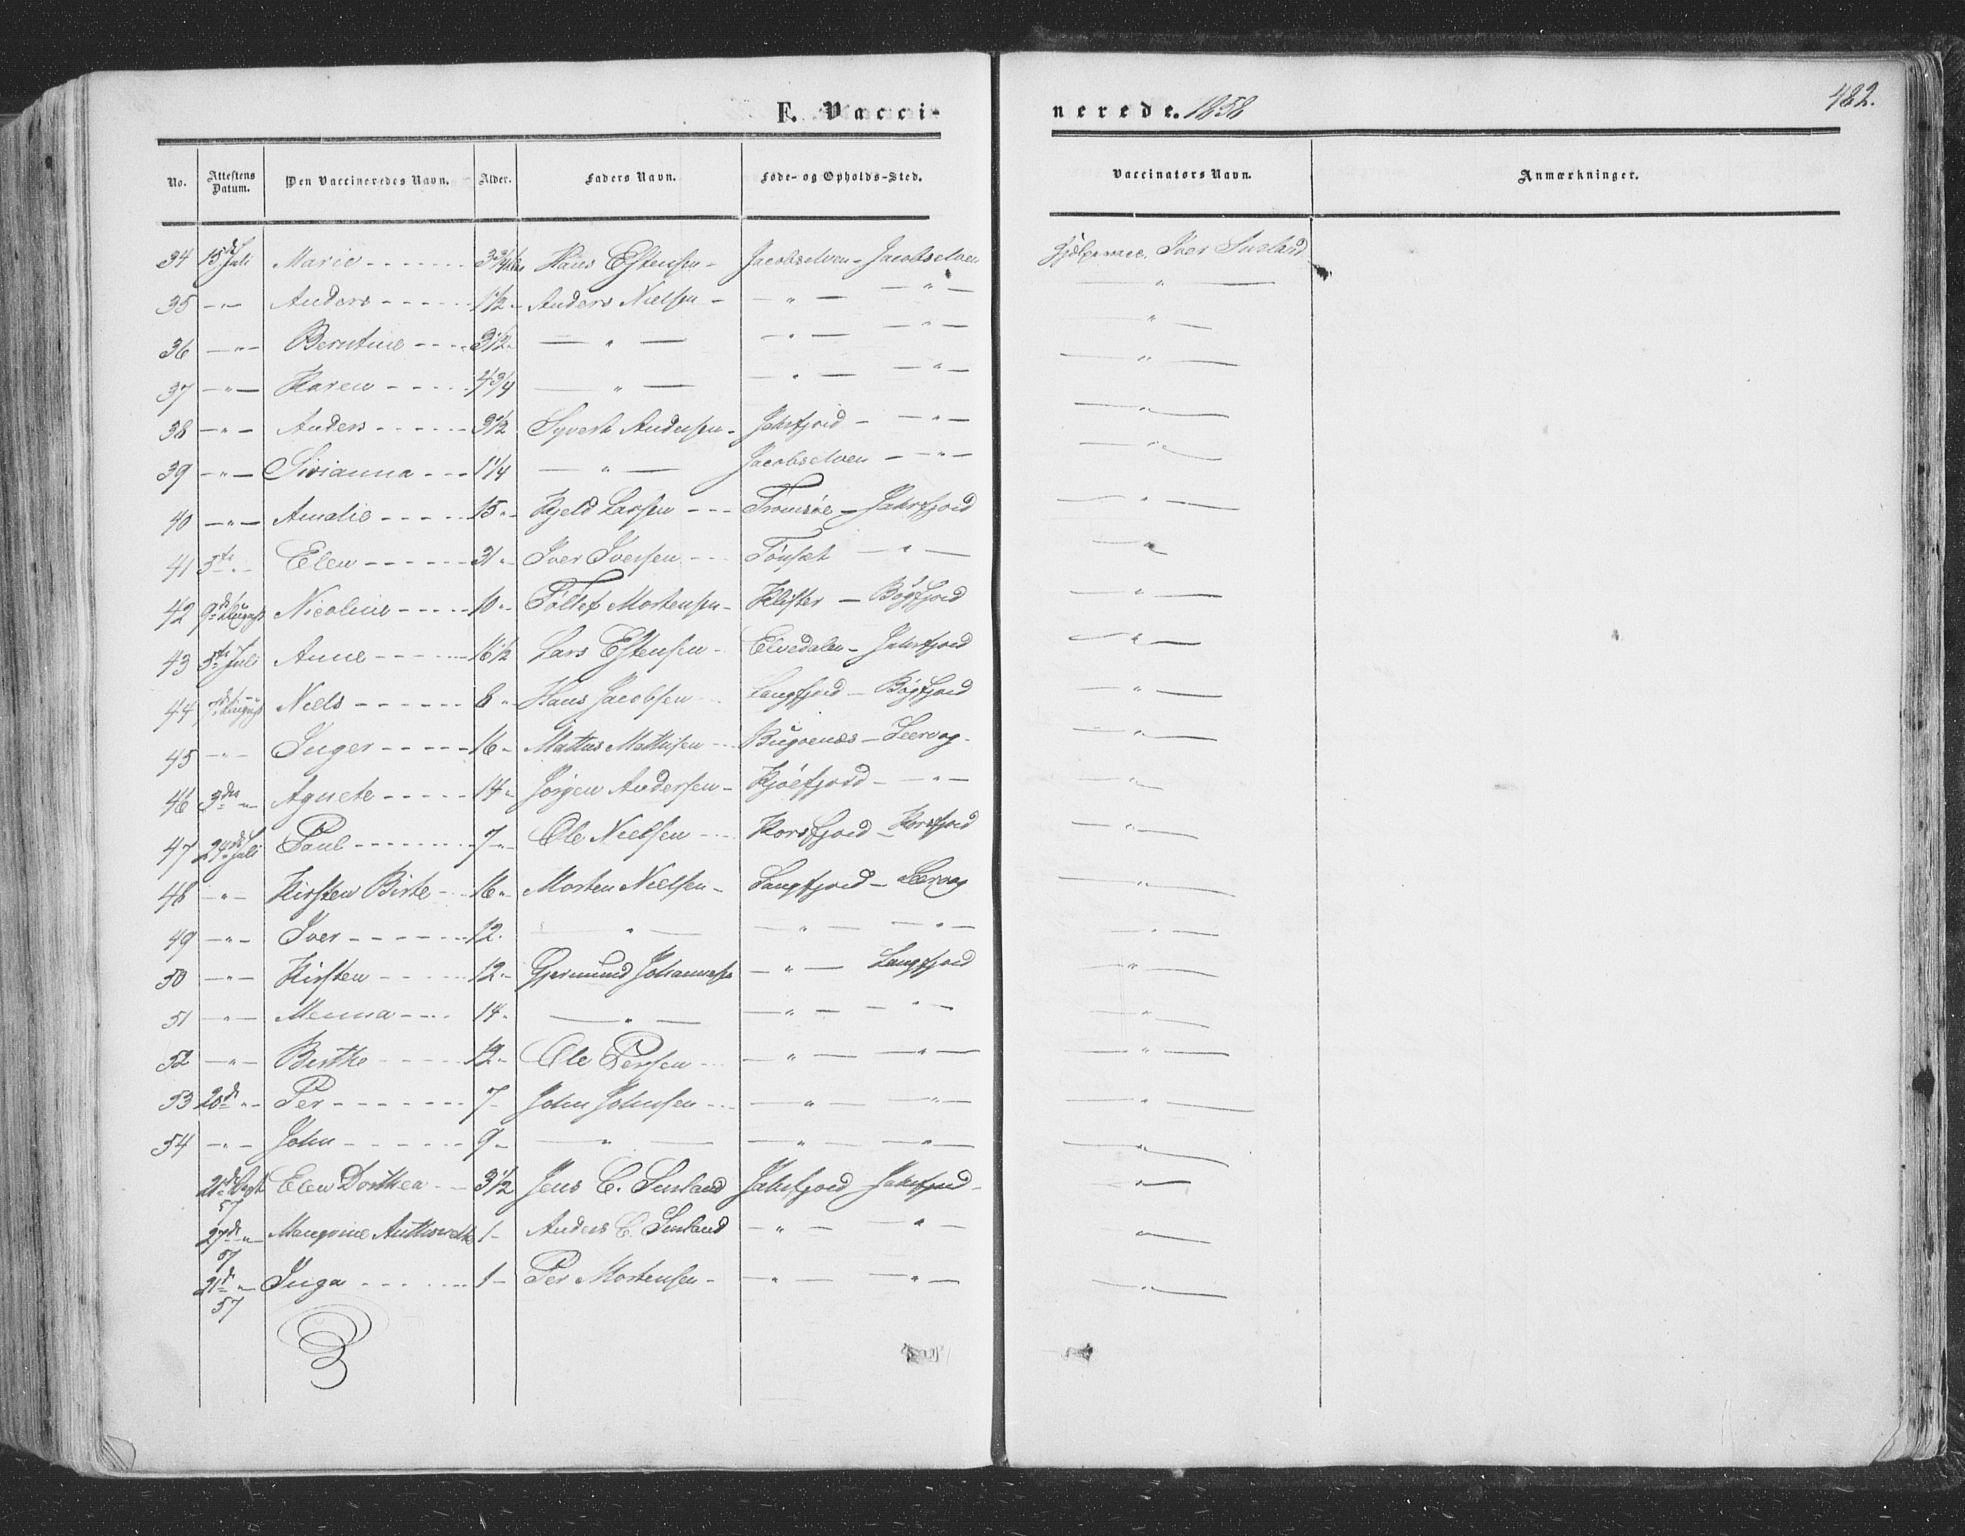 F. Vaccinerede. 1858
482.
No. Attestens Datum. Den Vaccineredes Navn. Alder. Faders Navn. Føde- og Opholds-Sted. Vaccinators Navn. Anmærkninger.
34 15de Juli Marie - - - 3 3/4 Hans Estensen - Jacobselven - Jacobselven Iver Susland
35 — " — Anders - - - 1 1/2 - Anders Nielsen - — " — — " — — " —
36 — " — Berntine - - - 3 1/2 - — " — — " — — " — — " —
37 — " — Karen - - - 4 3/4 — " — — " — — " — — " —
38 — " — Anders - - - 3 1/2 Syvert Andersen - Jakrfjord - — " — — " —
39 — " — Sirianna - - - 1 1/4 — " — Jacobselven - — " — — " —
40 — " — Amalie - - - 15 " Kjeld Larsen - - - Tromsøe - Jakrfjord — " —
41 5te " - Elen - - - 31 " Iver Iversen - - Tønset — " — — " —
42 9de August Nicoline - - - 10 " Tollef Mortensen - Klifter - Bøgfjord — " —
43 5te Juli Anne - - - 16 1/2 Lars Estensen - Elvedalen - Jakrfjord — " —
44 August Niels - - - 8 " Hans Jacobsen - Langfjord - Bøgfjord — " —
45 — " — Inger - - - 16 " Mattis Mathisen - - Bugoenæs - Leervag - — " —
46 3die " - Agnete - - - 14 " Jørgen Andersen - Kjøefjord - — " — — " —
47 24de Juli Paul - - - 7 " Ole Nielsen - - Korsfjord - Korsfjord — " —
48 — " — Kirsten Birte - 16 " Morten Nielsen - Langfjord - Leervag — " —
49 — " — Iver - - - 12. — " — — " — — " — — " —
50 — " — Kirsten - - - 12 " Gjermund Johannesen — " — Langfjord — " —
51 — " — Menna - - - 14 " — " — — " — — " — — " —
52 — " — Berthe - - - 12 - Ole Persen - - — " — — " — — " —
53 20de " - Per - - - 7 - John Johnsen - - — " — — " — — " —
54 — " — John - - - 9 - — " — — " — — " — — " —
21de Elen Dorthea - - 3 1/2 Jens C. Susland Jakrfjord Jakrfjord - — " —
57
27de " - 1 - Anders C. Susland — " — — " — — " —
57
21de " - Inga - - - 1 - Per Mortensen - — " — — " — — " —
57